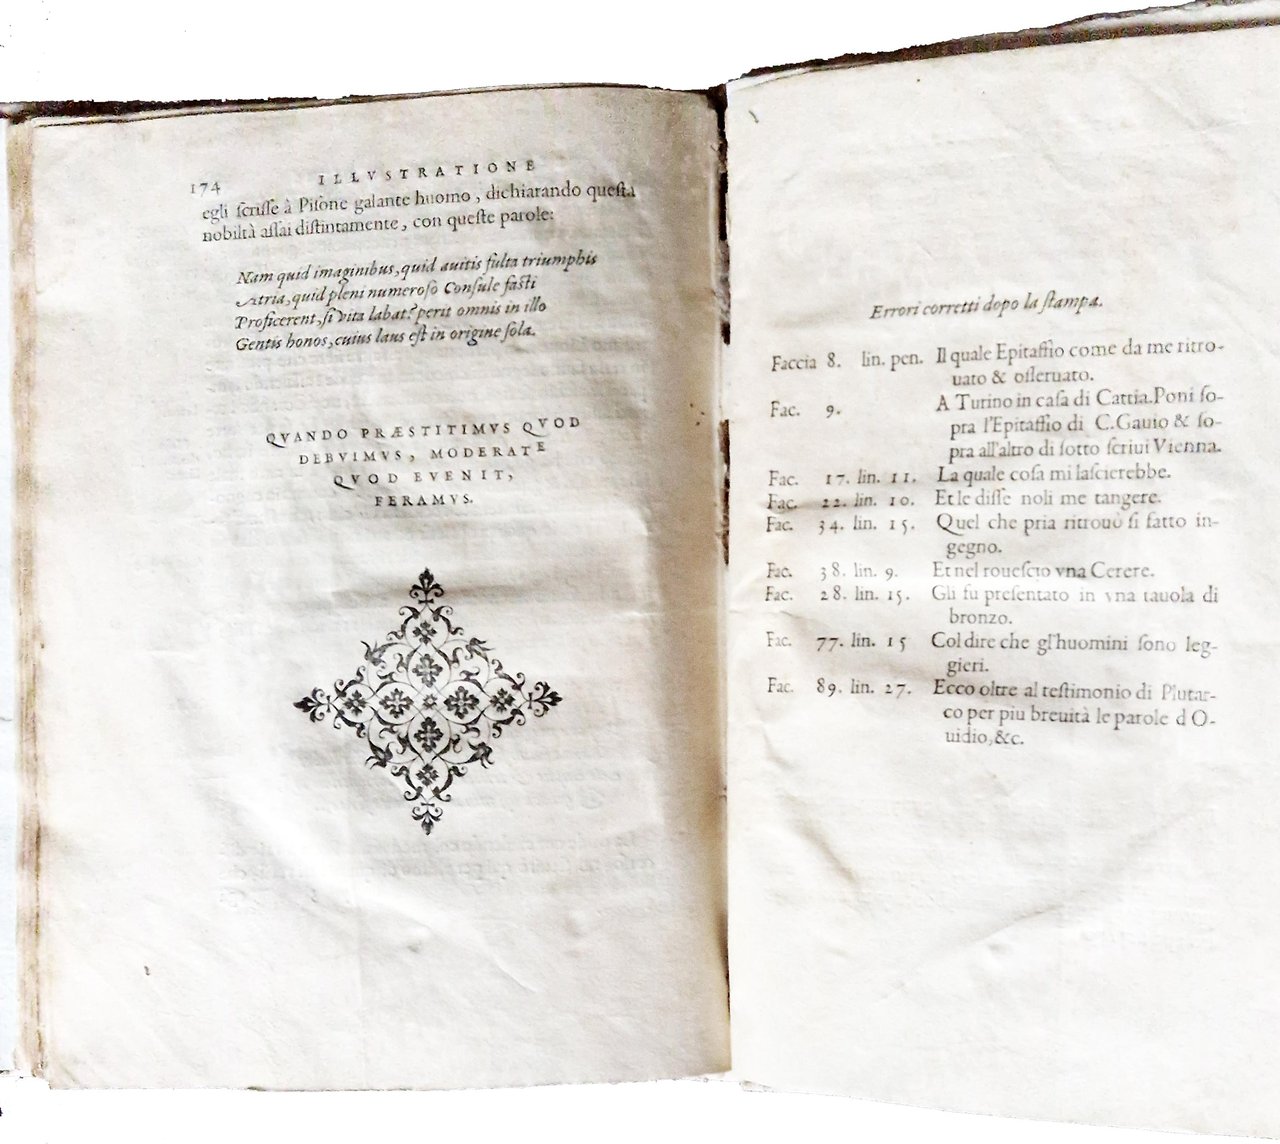 174 ILLVSTRATIONE
egli ſcriſſe à Piſone galante huomo, dichiarando queſta
nobiltà aſſai diſtintamente, con queſte parole:
Nam quid imaginibus, quid auitis fulta triumphis
Atria, quid pleni numeroſo Conſule faſti
Proficerent, ſi vita labat? perit omnis in illo
Gentis honos, cuius laus eſt in origine ſola.
QVANDO PRÆSTITIMVS QVOD
DEBVIMVS, MODERATE
QVOD EVENIT,
FERAMVS.
Errori corretti dopo la ſtampa.
Faccia 8. lin. pen. Il quale Epitaffio come da me ritro-
uato & oſſeruato.
Fac. 9. A Turino in caſa di Cattia. Poni ſo-
pra l'Epitaffio di C. Gauio & ſo-
pra all'altro di ſotto ſcriui Vienna.
Fac. 17. lin. 11. La quale coſa mi laſcierebbe.
Fac. 22. lin. 10. Et le diſſe noli me tangere.
Fac. 34. lin. 15. Quel che pria ritrouò ſi fatto in-
gegno.
Fac. 38. lin. 9. Et nel roueſcio vna Cerere.
Fac. 28. lin. 15. Gli fu preſentato in vna tauola di
bronzo.
Fac. 77. lin. 15 Col dire che gl'huomini ſono leg-
gieri.
Fac. 89. lin. 27. Ecco oltre al teſtimonio di Plutar-
co per piu breuità le parole d O-
uidio, &c.